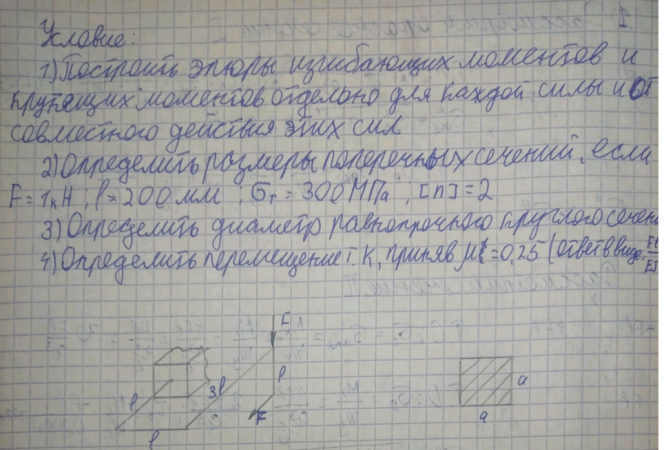 Условие:
1) Построить эпюры изгибающих моментов и
крутящих моментов отдельно для каждой силы и от
совместного действия этих сил
2) Определить размеры поперечных сечений, если
F = 1кН ; l = 200 мм ; σт = 300 МПа ; [n] = 2
3) Определить диаметр равнопрочного круглого сечени
4) Определить перемещение т. К, приняв μ = 0,25 (ответ в виде
F
l
3l
l
F
l
a
a